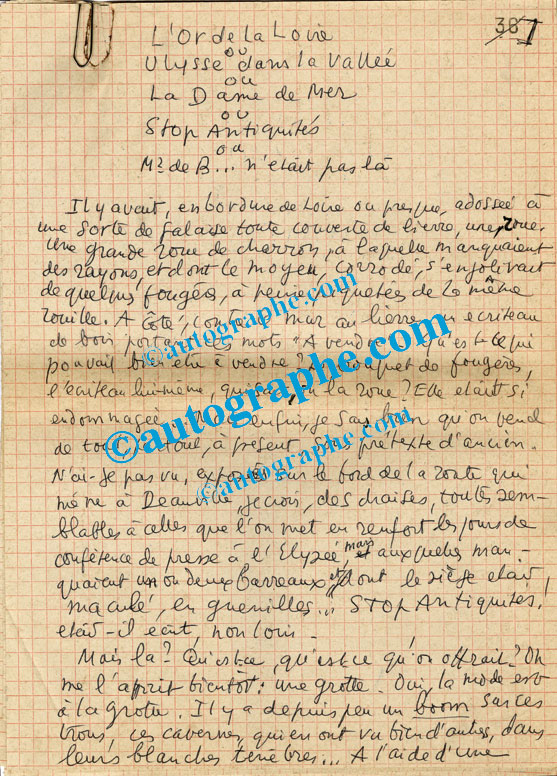 38 1
L'Or de la Loire
ou
Ulysse dans la Vallée
ou
La Dame de Mer
ou
Stop Antiquités
ou
Mr de B... n'était pas là
Il y avait, en bordure de Loire ou presque, adossée à
une sorte de falaise toute couverte de lierre, une roue.
Une grande roue de charron, à laquelle manquaient
des rayons et dont le moyeu, corrodé, s'enjolivait
de quelques fougères, à peine piquetées de la même
rouille. A côté, contre le mar au lierre, un écriteau
de bois portait les mots "A vendre". Qu'est-ce qui
pouvait bien être à vendre? Le bouquet de fougères,
l'écriteau lui-même, qui sait, ou la roue? Elle était si
endommagée... Mais enfin, je sais bien qu'on vend
de tout, partout, à présent, sous prétexte d'ancien.
N'ai-je pas vu, exposées sur le bord de la route qui
mène à Deauville, je crois, des chaises, toutes sem-
blables à celles que l'on met en renfort les jours de
conférence de presse à l'Elysée, mais auxquelles man-
quaient un ou deux barreaux et dont le siège était
maculé, en guenilles... STOP Antiquités!
était-il écrit, non loin.
Mais là? Qu'est-ce, qu'est-ce qu'on offrait? On
me l'apprit bientôt: une grotte. Oui, la mode est
à la grotte. Il y a depuis peu un boom sur ces
trous, ces cavernes, qui en ont vu bien d'autres, dans
leurs blanches ténèbres... A l'aide d'une
©autographe.com
©autographe.com
©autographe.com